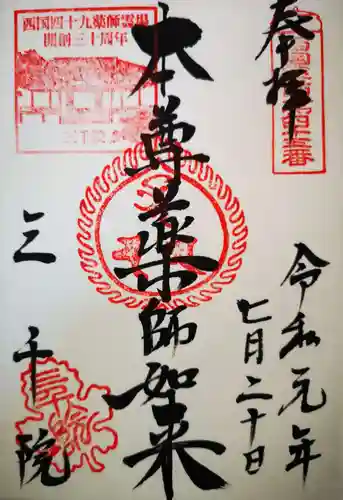 奉拝
令和元年
七月二十日
本尊薬師如来
西国四十九薬師霊場
開創三十周年
三千院